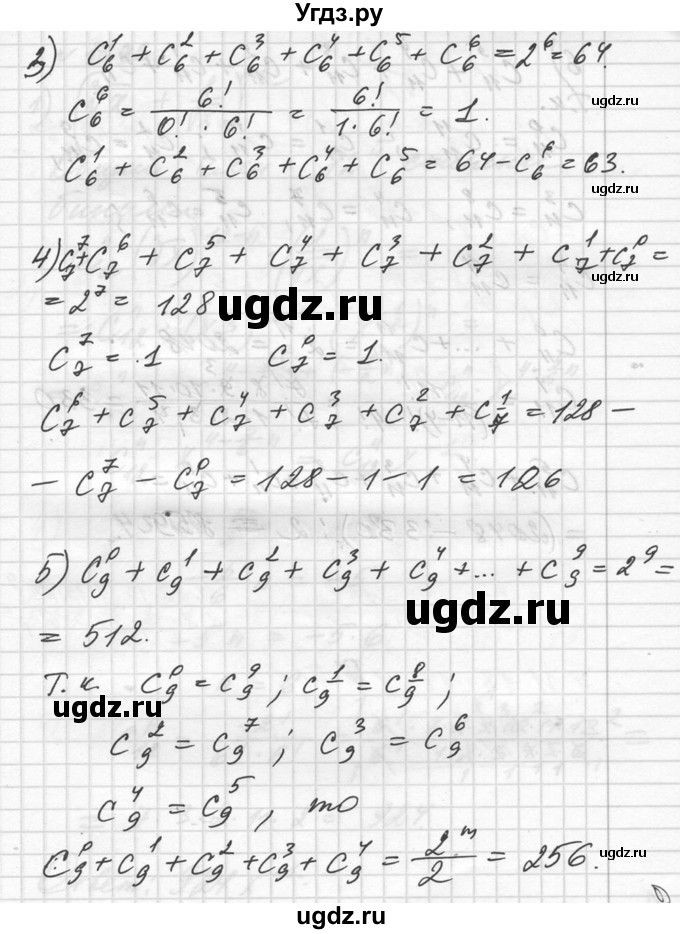 Угдз.ру
3) C₆¹ + C₆² + C₆³ + C₆⁴ + C₆⁵ + C₆⁶ = 2⁶ = 64.
ugdz.ru
C₆⁶ = 6!/(0! · 6!) = 6!/(1 · 6!) = 1.
C₆¹ + C₆² + C₆³ + C₆⁴ + C₆⁵ = 64 − C₆⁶ = 63.
ugdz.ru
4) C₇⁷ + C₇⁶ + C₇⁵ + C₇⁴ + C₇³ + C₇² + C₇¹ + C₇⁰ =
ugdz.ru
= 2⁷ = 128
ugdz.ru
C₇⁷ = 1 C₇⁰ = 1.
C₇⁶ + C₇⁵ + C₇⁴ + C₇³ + C₇² + C₇¹ = 128 −
− C₇⁷ − C₇⁰ = 128 − 1 − 1 = 126
5) C₉⁰ + C₉¹ + C₉² + C₉³ + C₉⁴ + ... + C₉⁹ = 2⁹ =
ugdz.ru
= 512.
Т.к. C₉⁰ = C₉⁹ ; C₉¹ = C₉⁸ ;
ugdz.ru
C₉² = C₉⁷ ; C₉³ = C₉⁶
C₉⁴ = C₉⁵, то
C₉⁰ + C₉¹ + C₉² + C₉³ + C₉⁴ = 2ᵐ/2 = 256.
ugdz.ru
ugdz.ru